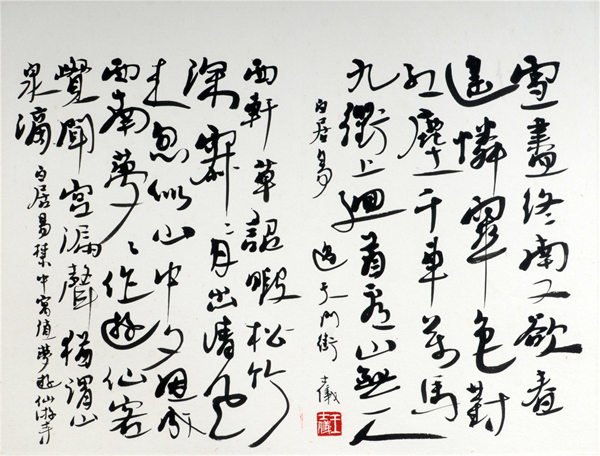 雪盡終南又欲春
遙憐翠色對
紅塵千車萬馬
九衢上迴首看山無一人
白居易 過天門街 士儀
西軒草詔暇松竹
深寂〻月出清風
来忽似山中夕因成
西南夢〻作遊仙客
覺聞宮漏聲猶謂山
泉滴 白居易禁中寓直夢遊仙游寺